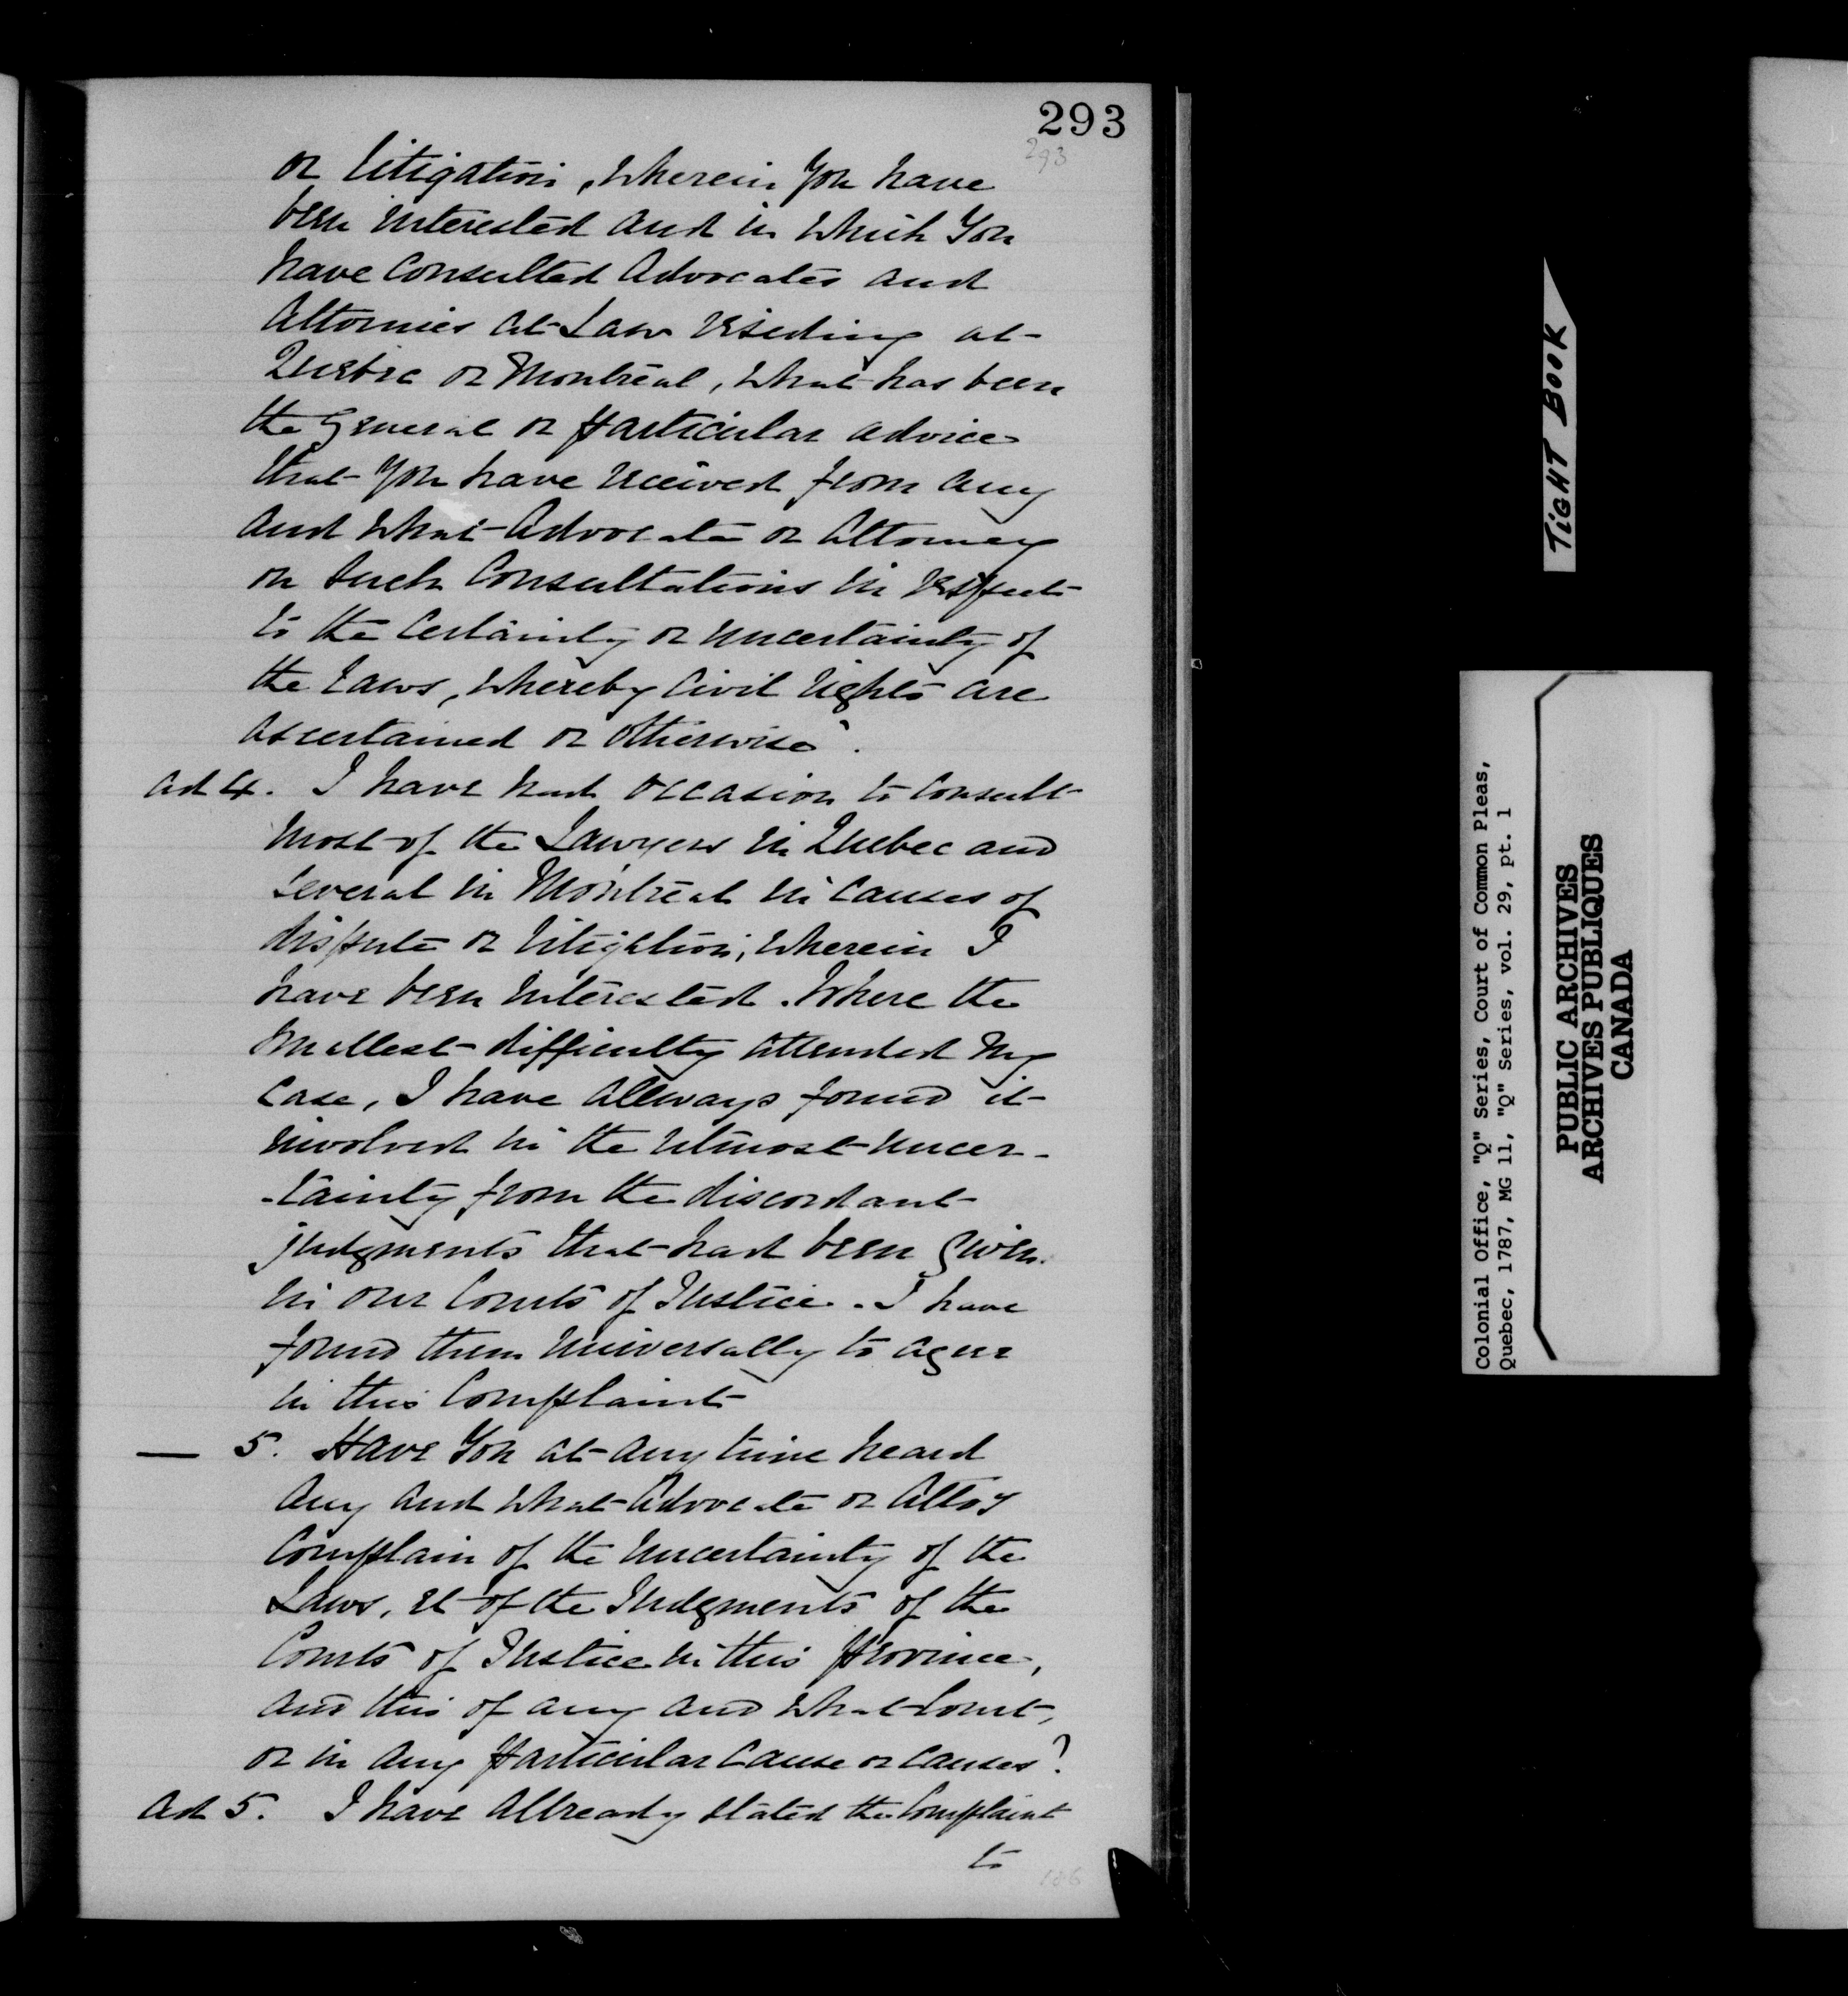 293
293
or litigation, wherein You have
been interested and in which You
have consulted Advocates and
Attornies at Law residing at
Quebec or Montreal, what has been
the General or particular advice
that You have received from any
and what Advocate or Attorney
on such Consultations in respect
to the Certainty or uncertainty of
the Laws, whereby Civil rights are
ascertained or otherwise".
ad 4. I have had occasion to consult
most of the Lawyers in Quebec and
several in Montreal in causes of
dispute or litigation, wherein I
have been interested. Where the
smallest difficulty attended my
Case, I have allways found it
involved in the utmost uncer-
-tainty from the discordant
judgments that had been given
in our Courts of Justice. I have
found them universally to agree
in this Complaint
— 5. Have You at any time heard
any and what Advocate or Atto'y
Complain of the uncertainty of the
Laws, et of the Judgments of the
Courts of Justice in this Province,
and this of any and what Court,
or in any particular Cause or causes?
ad 5. I have allready stated the Complaint
to
186
TIGHT BOOK
Colonial Office, "Q" Series, Court of Common Pleas,
Quebec, 1787, MG 11, "Q" Series, vol. 29, pt. 1
PUBLIC ARCHIVES
ARCHIVES PUBLIQUES
CANADA